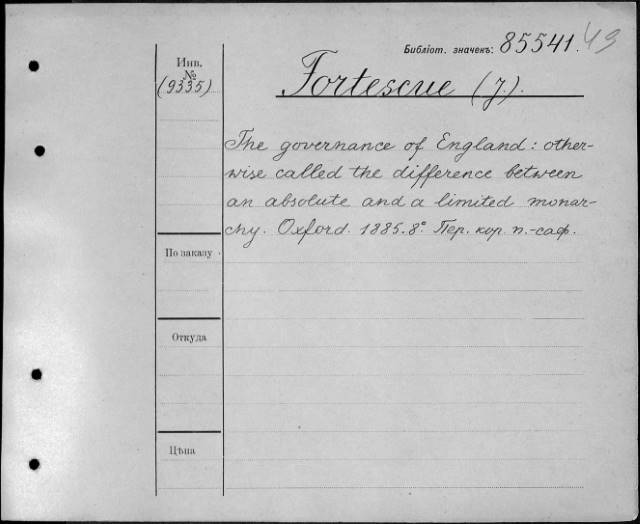 Библіот. значекъ: 85541. 49
Инв.
№
(9335)
Fortescue (J.).
The governance of England: other-
wise called the difference between
an absolute and a limited monar-
chy. Oxford. 1885. 8° Пер. кор. п.-саф.
По заказу
Откуда
Цѣна